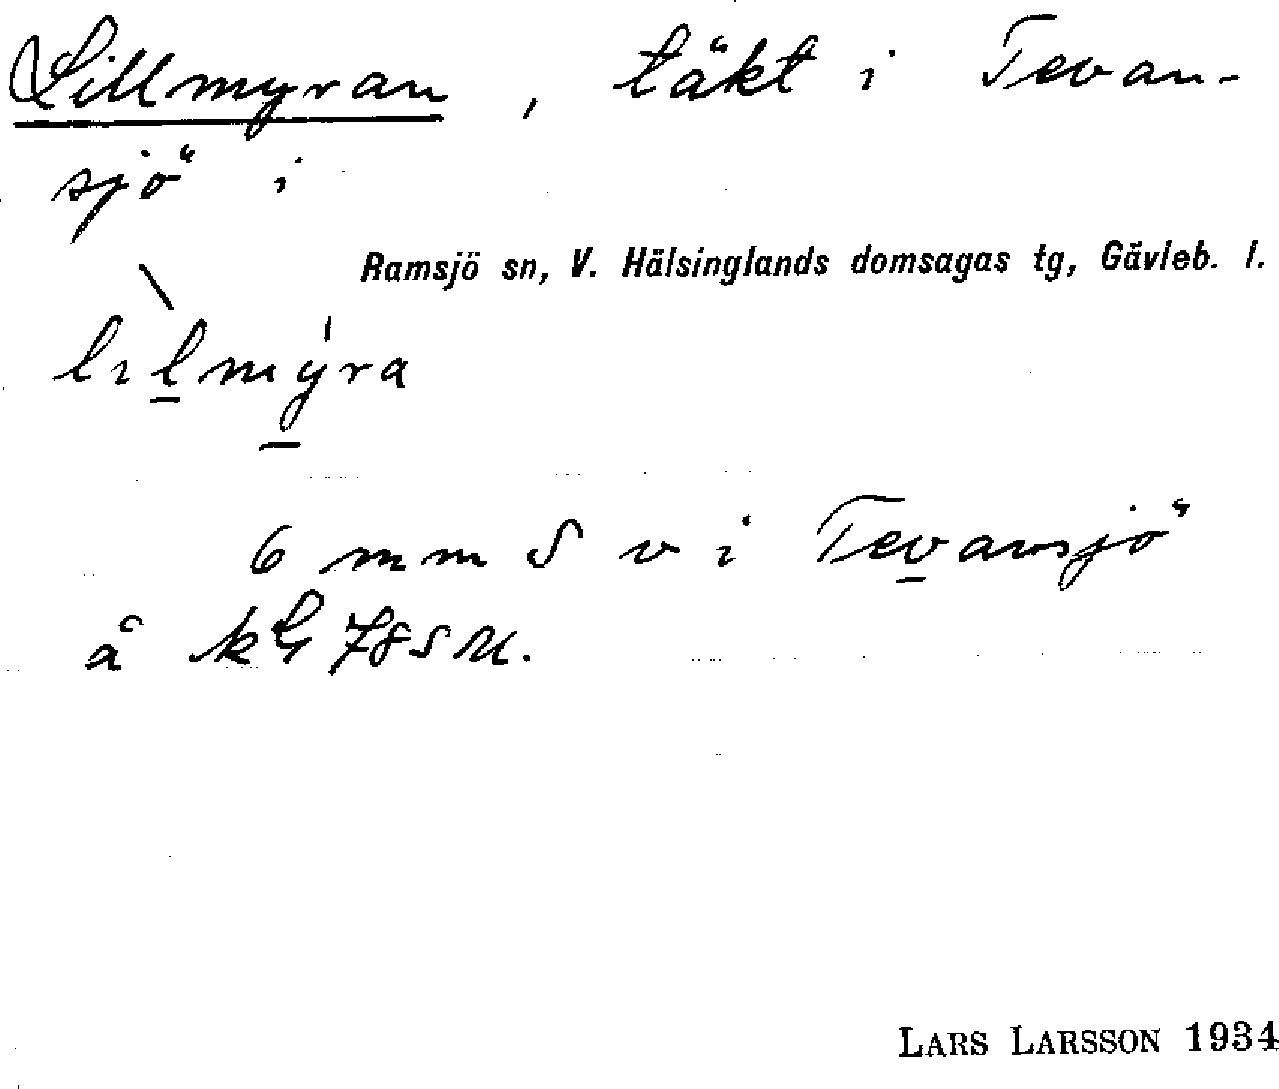 Lillmyran, täkt i Tevan-
sjö i
Ramsjö sn, V. Hälsinglands domsagas tg, Gävleb. l.
lılmýra
6 mm S v i Tevansjö
å 78 S M.
LARS LARSSON 1934